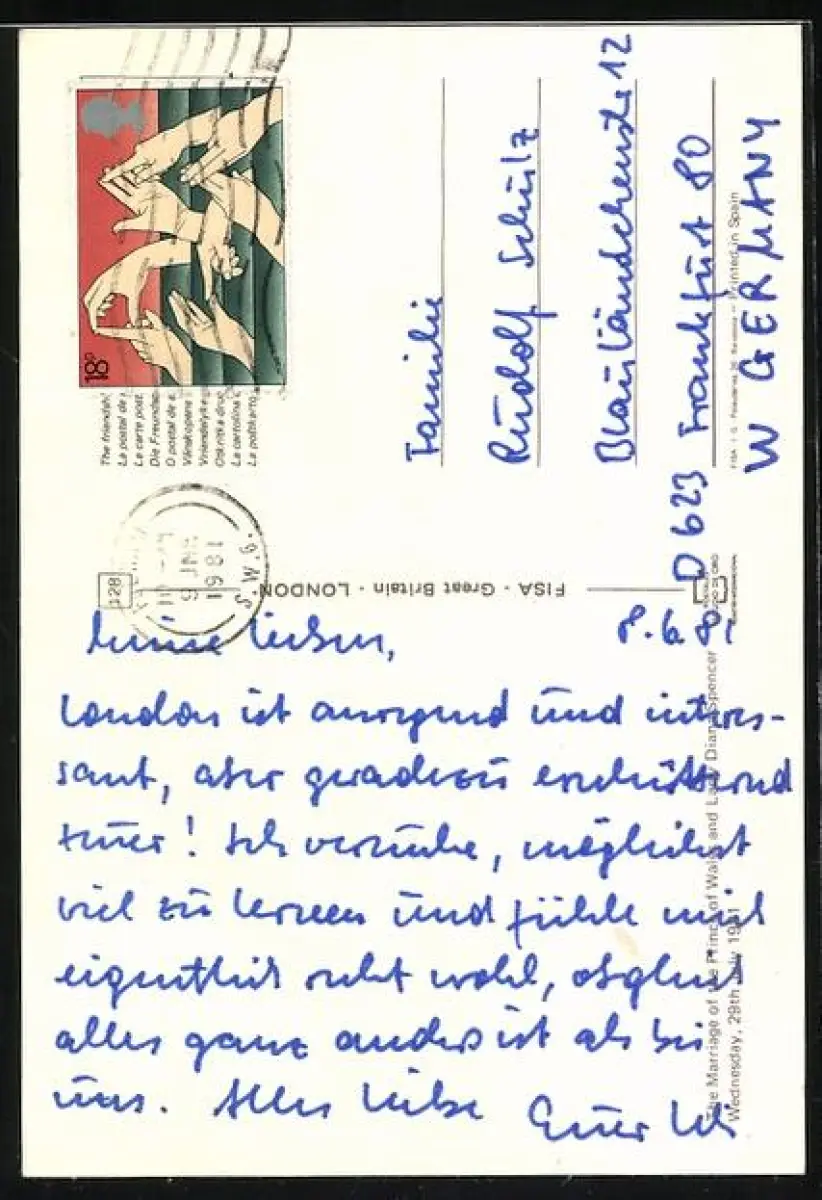 18p
The friendsh
La postal de
La carte post
Die Freundsc
O postal de a
Vänskapens
Vriendelyke
Oskritka druz
La cartolina
La pohikarto
Familie
Rudolf Schulz
Blauländchenstr. 12
D 623 Frankfurt 80
W GERMANY
FISA I. G. Printed in Spain
128
9 JNE
1981
S.W.6.
FISA - Great Britain - LONDON
8.6.81
Meine Lieben,
London ist anregend und interes-
sant, aber geradezu erschütternd
teuer! Ich versuche, möglichst
viel zu lernen und fühle mich
eigentlich recht wohl, obgleich
alles ganz anders ist als bei
uns. Alles Liebe Euer
The Marriage of the Prince of Wales and Lady Diana Spencer
Wednesday, 29th July 1981